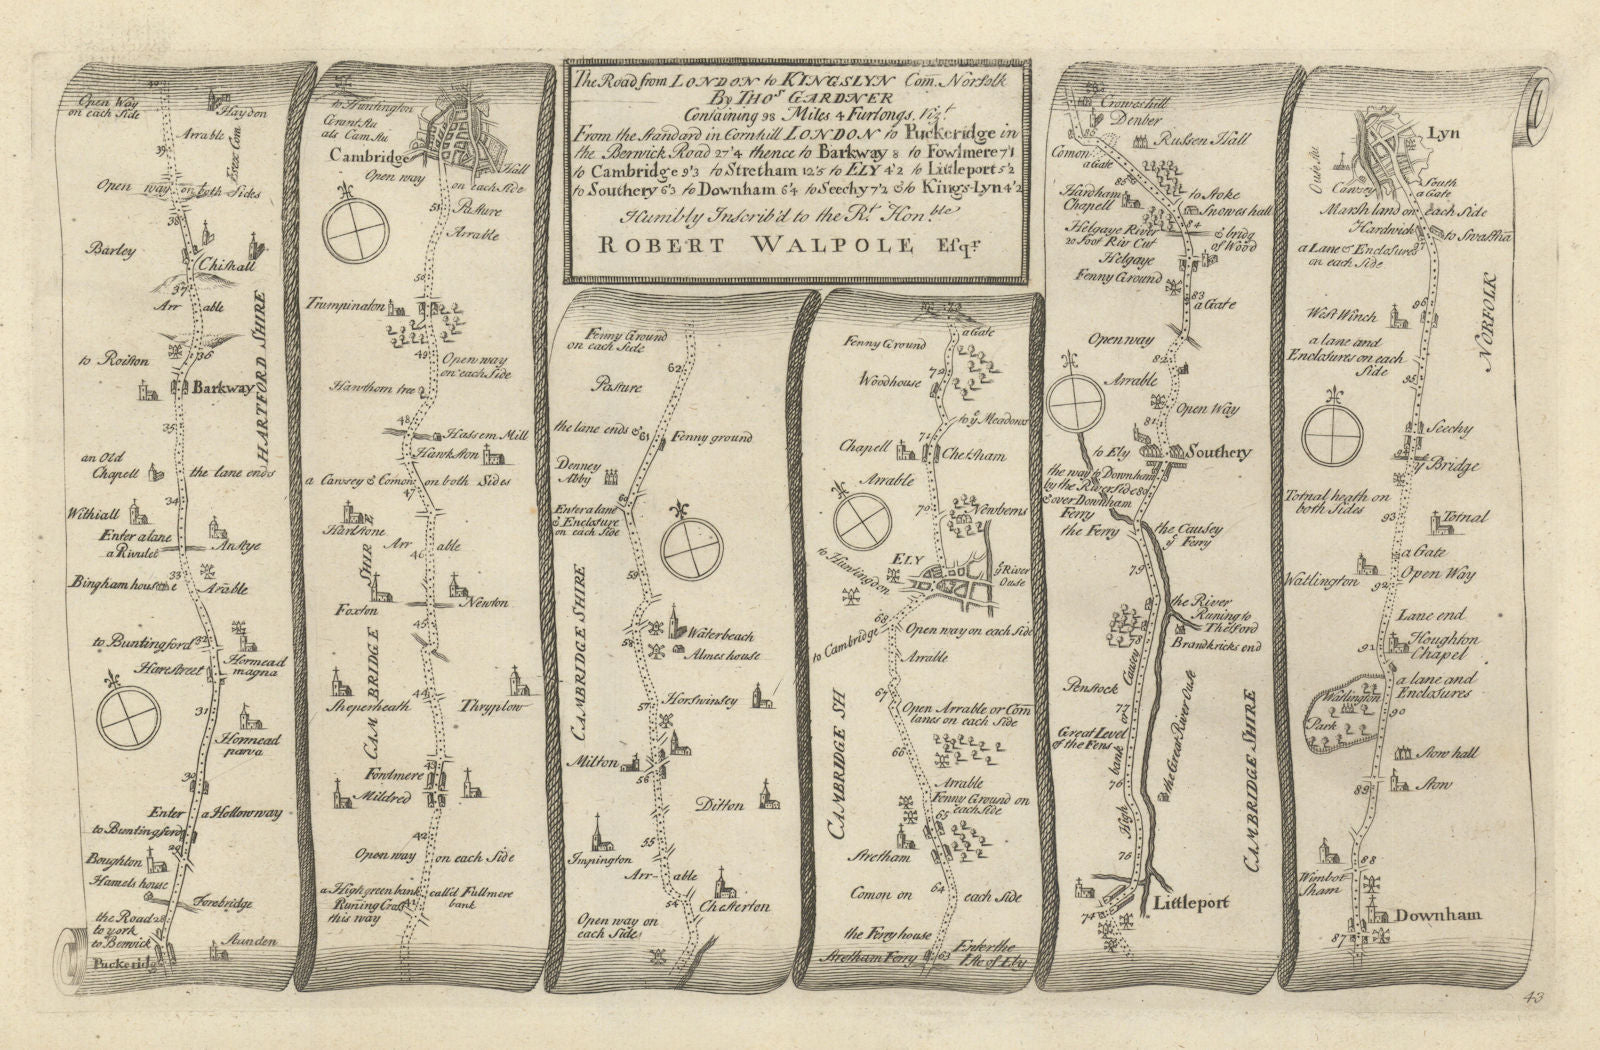 The Road from LONDON to KINGSLYN Com. Norfolk
By THOs. GARDNER
Containing 98 Miles 4 Furlongs, Vizt.
From the Standard in Cornhill LONDON to Puckeridge in
the Berwick Road 27'4 thence to Barkway 8 to Fowlmere 7'1
to Cambridge 9'3 to Stretham 12'5 to ELY 4'2 to Littleport 5'2
to Southery 6'3 to Downham 6'4 to Seechy 7'2 & to Kings-Lyn 4'2
Humbly Inscrib'd to the Rt. Honble
ROBERT WALPOLE Esqr.
40
Open Way
on each Side
Haydon
Arrable
Essex Com.
39
Open way on both Sides
38
Barley
Chishall
37
Arr able
HARTFORD SHIRE
36
to Roiston
Barkway
35
an Old
Chapell
the lane ends
34
Withiall
Enter a lane
a Rivulet
Anstye
33
Bingham house
Arable
32
to Buntingford
Hormead
magna
Harestreet
31
Hormead
parva
30
Enter a Hollow way
to Buntingford
29
Boughton
Hamels house
Forebridge
the Road 28
to York
to Berwick
Stunden
Puckeridg
to Huntington
Grant flu
als Cam flu
Cambridge
Hall
Open way on each Side
51
Pasture
Arrable
50
Trumpinaton
49
Open way
on each Side
Hawthorn tree
48
Hassem Mill
Hawkston
a Cawsey & Comon on both Sides
47
Harlstone
Arr able
46
CAMBRIDGE SHIR
Foxton
Newton
45
44
Sheperheath
Thryplow
43
Fowlmere
Mildred
42
Open way on each Side
a High green bank call'd Fullmere
Runing Cross bank
this way
41
Fenny Ground
on each Side
62
Pasture
the lane ends &
61
Fenny ground
Denney
Abby
60
Enter a lane
& Enclosure
on each Side
59
CAMBRIDGE SHIRE
58
Waterbeach
Almes house
57
Horswinsey
Milton
56
Ditton
55
Impington
Arr able
54
Chesterton
Open way on
each Side
73
a Gate
Fenny Ground
72
Woodhouse
to ye Meadows
71
Chapell
Chetsham
Arrable
70
Newberns
to Huntingdon
ELY
ye River
Ouse
68
to Cambridge
Open way on each Side
Arrable
67
CAMBRIDGE SH
Open Arrable or Com
lanes on each Side
66
Arrable
Fenny Ground on
each Side
65
Stretham
64
Comon on each Side
the Ferry house
Stretham Ferry
63
Enter the
Isle of Ely
Croweshill
Denber
86
Russen Hall
Comon
a Gate
85
Hardham
Chapell
to Stoke
Snowes hall
84
Helgaye River
20 Foot Riv Cut
& bridg
of Wood
Helgaye
Fenny Ground
83
a Gate
Open way
82
Arrable
Open Way
81
to Ely
Southery
the way to Downham
by the River side 80
& over Downham
Ferry
the Ferry
the Causey
ye Ferry
79
the River
Runing to
Thetford
78
Brandkricks end
Causey
Penstock
77
or
Great Level
of the Fens
bank
76
High
75
the Great River Ouse
CAMBRIDGE SHIRE
74
Littleport
Lyn
Ouse flu
Cawsey
South
a Gate
Marsh land on each side
Hardwick
97
to Swaffha
a Lane & Enclosures
on each Side
NORFOLK
96
West Winch
a lane and
Enclosures on each
Side
95
Seechy
ye Bridge
Totnal heath on
both Sides
93
Totnal
a Gate
Open Way
Watlington
92
Lane end
91
Houghton
Chapel
a lane and
Enclosures
Watlington
Park
90
Stow hall
89
Stow
88
Wimbot
Sham
Downham
87
43